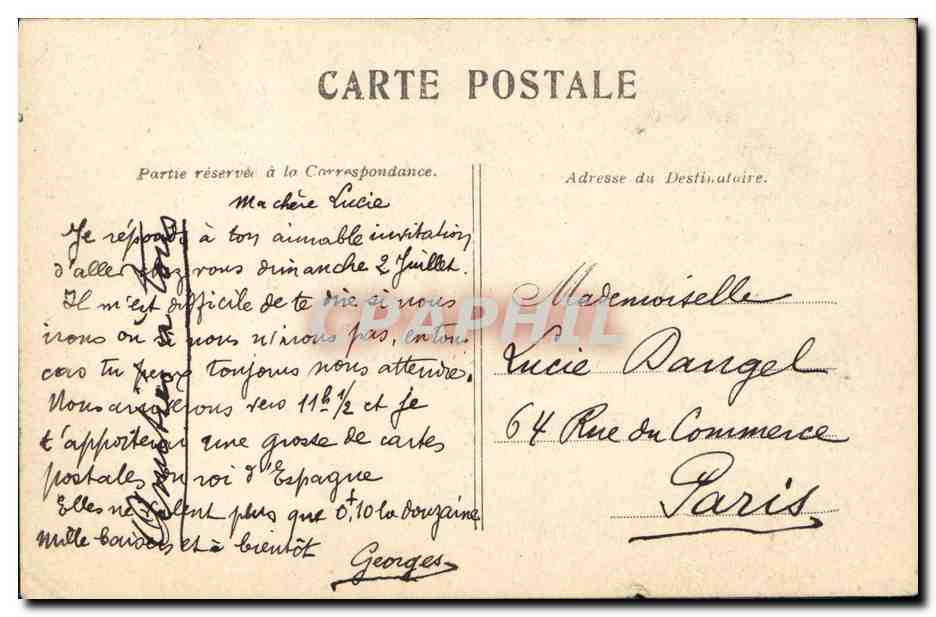 CARTE POSTALE
Partie réservée à la Correspondance.
Adresse du Destinataire.
Ma chère Lucie
Je réponds à ton aimable invitation
d'aller chez vous dimanche 2 Juillet.
Il m'est difficile de te dire si nous
irons ou si nous n'irons pas, en tous
cas tu peux toujours nous attendre.
Nous arriverons vers 11h 1/2 et je
t'apporterai une grosse de cartes
postales du roi d'Espagne
Elles ne valent plus que 0f,10 la douzaine
Mille baisers et à bientôt
Georges
Amitiés à tous
Mademoiselle
Lucie Dangel
64 Rue du Commerce
Paris
CPAPHIL